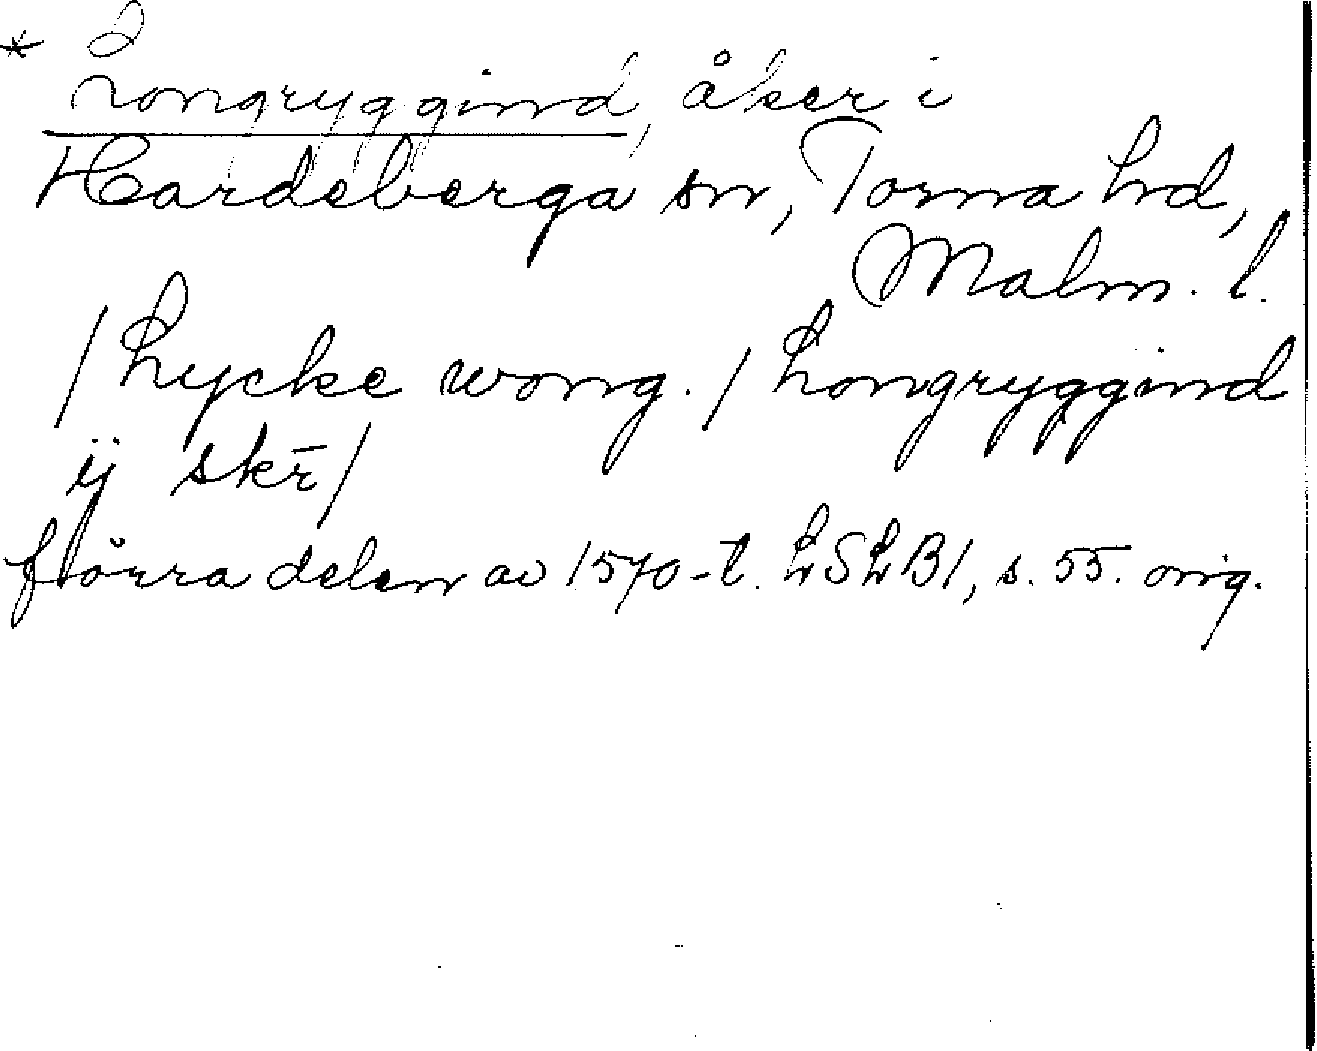 * Longryggind, åker i
Hardeberga sn, Torna hd,
Malm. l.
/ Lycke wong. / Longryggind
ij skr̄ /
förra delen av 1570-t. LSLB1, s. 55. orig.